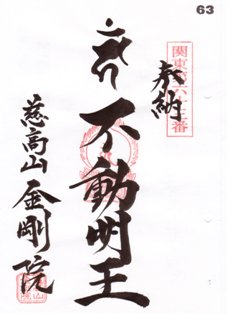 63
奉納
関東第六十三番
不動明王
慈高山 金剛院